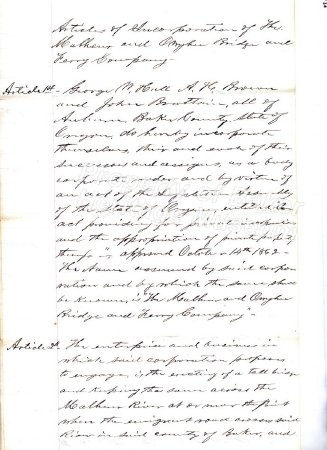 Articles of Incorporation of The
Malheur and Owyhee Bridge and
Ferry Company
Article 1st. George W. Hall A. H. Brown
and John Boutwin, all of
Auburn Baker County, State of
Oregon, do hereby incorporate
themselves, their and each of their
successors and assigns, as a body
corporate under and by virtue of
an act of the Legislative Assembly
of the State of Oregon, entitled "An
act providing for private incorporation
and the appropriation of private property
therefor", approved October 14th 1862 -
The Name assumed by said corpo-
ration and by which the same shall
be known, is "The Malheur and Owyhee
Bridge and Ferry Company" -
Article 2d. The enterprise and business in
which said corporation proposes
to engage, is, the erecting of a toll bridge
and keeping the same across the
Malheur River at or near the point
where the emigrant road crosses said
River in said county of Baker, and